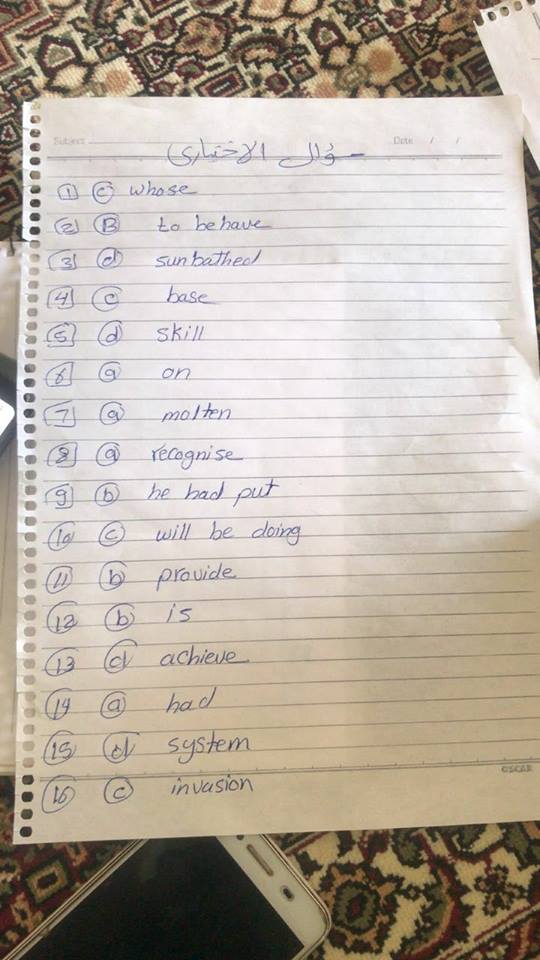 Subject
Date / /
سؤال الاختياري
1 c whose
2 B to behave
3 d sunbathed
4 c base
5 d skill
6 a on
7 a molten
8 a recognise
9 b he had put
10 c will be doing
11 b provide
12 b is
13 d achieve
14 a had
15 d system
OSCAR
16 c invasion